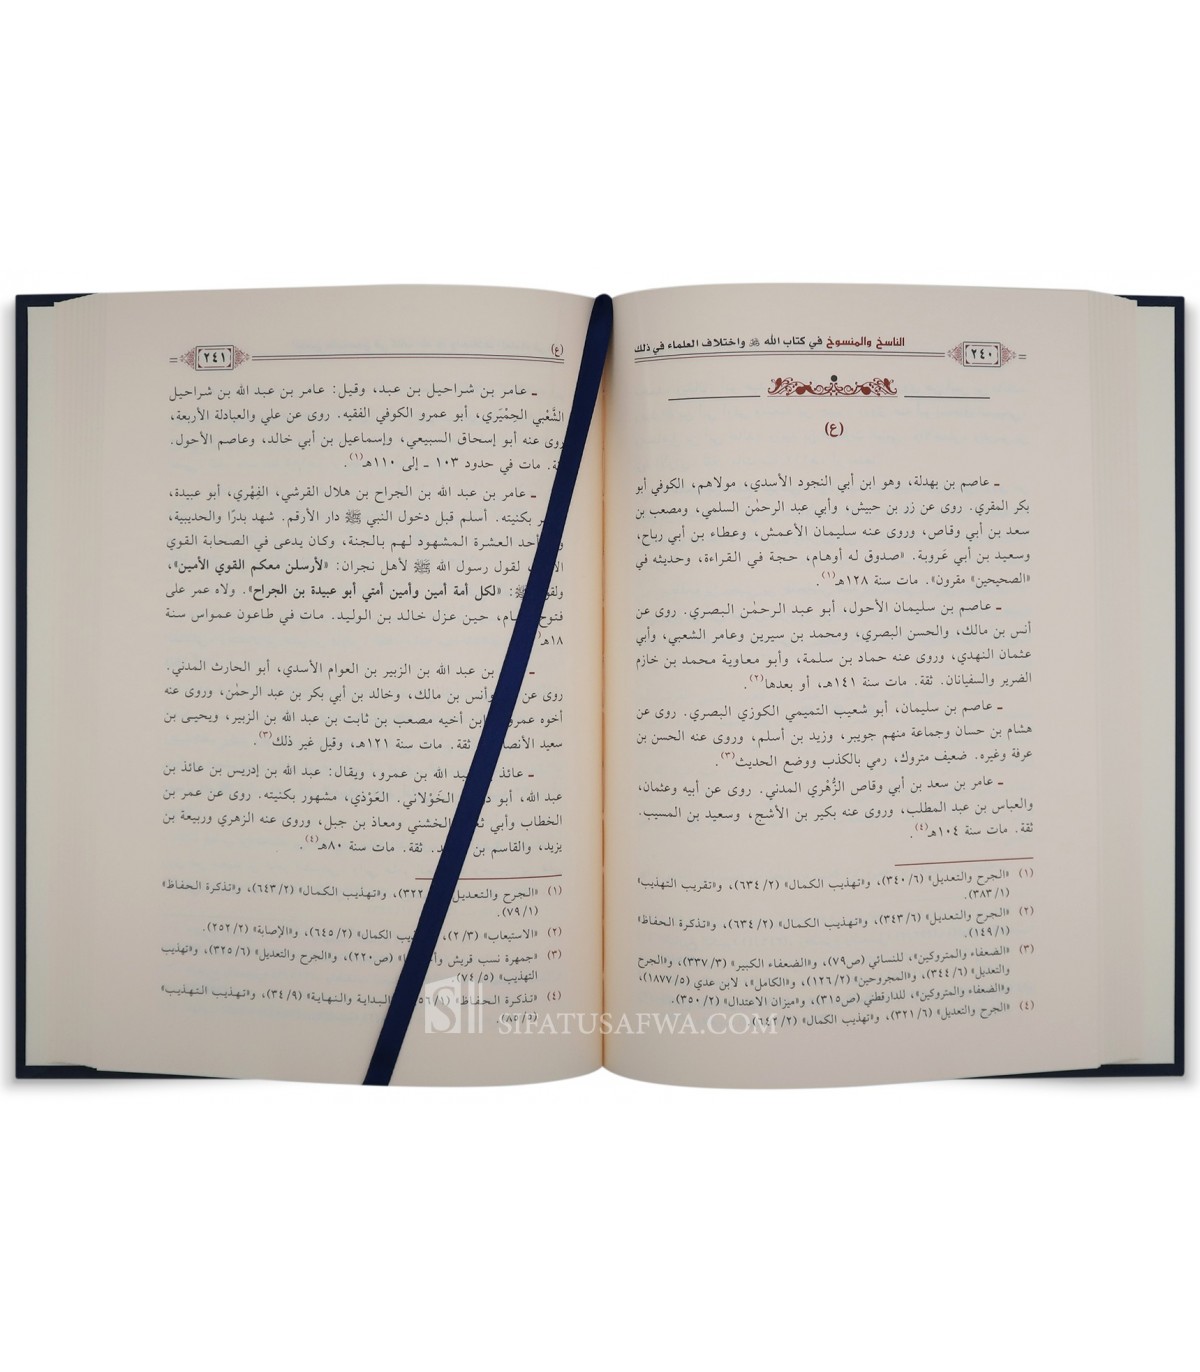 الناسخ والمنسوخ في كتاب الله ﷻ واختلاف العلماء في ذلك
٢٤٠
(ع)
ـ عاصم بن بهدلة، وهو ابن أبي النجود الأسدي، مولاهم، الكوفي أبو
بكر المقري. روى عن زر بن حبيش، وأبي عبد الرحمٰن السلمي، ومصعب بن
سعد بن أبي وقاص، وروى عنه سليمان الأعمش، وعطاء بن أبي رباح،
وسعيد بن أبي عَروبة. «صدوق له أوهام، حجة في القراءة، وحديثه في
«الصحيحين» مقرون». مات سنة ١٢٨هـ(١).
ـ عاصم بن سليمان الأحول، أبو عبد الرحمٰن البصري. روى عن
أنس بن مالك، والحسن البصري، ومحمد بن سيرين وعامر الشعبي، وأبي
عثمان النهدي، وروى عنه حماد بن سلمة، وأبو معاوية محمد بن خازم
الضرير والسفيانان. ثقة. مات سنة ١٤١هـ، أو بعدها(٢).
ـ عاصم بن سليمان، أبو شعيب التميمي الكوزي البصري. روى عن
هشام بن حسان وجماعة منهم جويبر، وزيد بن أسلم، وروى عنه الحسن بن
عرفة وغيره. ضعيف متروك، رمي بالكذب ووضع الحديث(٣).
ـ عامر بن سعد بن أبي وقاص الزُّهْري المدني. روى عن أبيه وعثمان،
والعباس بن عبد المطلب، وروى عنه بكير بن الأشج، وسعيد بن المسيب.
ثقة. مات سنة ١٠٤هـ(٤).
(١) «الجرح والتعديل» (٦/ ٣٤٠)، و«تهذيب الكمال» (٢/ ٦٣٤)، و«تقريب التهذيب»
(١/ ٣٨٣).
(٢) «الجرح والتعديل» (٦/ ٣٤٣)، و«تهذيب الكمال» (٢/ ٦٣٤)، و«تذكرة الحفاظ»
(١/ ١٤٩).
(٣) «الضعفاء والمتروكين»، للنسائي (ص٧٩)، و«الضعفاء الكبير» (٣/ ٣٣٧)، و«الجرح
والتعديل» (٦/ ٣٤٤)، و«المجروحين» (٢/ ١٢٦)، و«الكامل»، لابن عدي (٥/ ١٨٧٧)،
و«الضعفاء والمتروكين»، للدارقطني (ص٣١٥)، و«ميزان الاعتدال» (٢/ ٣٥٠).
(٤) «الجرح والتعديل» (٦/ ٣٢١)، و«تهذيب الكمال» (٢/ ٦٤٢).
(ع)
٢٤١
ـ عامر بن شراحيل بن عبد، وقيل: عامر بن عبد الله بن شراحيل
الشَّعْبي الحِمْيَري، أبو عمرو الكوفي الفقيه. روى عن علي والعبادلة الأربعة،
روى عنه أبو إسحاق السبيعي، وإسماعيل بن أبي خالد، وعاصم الأحول.
مات في حدود ١٠٣ ـ إلى ١١٠هـ(١).
ـ عامر بن عبد الله بن الجراح بن هلال القرشي، الفِهْري، أبو عبيدة،
بكنيته. أسلم قبل دخول النبي ﷺ دار الأرقم. شهد بدرًا والحديبية،
أحد العشرة المشهود لهم بالجنة، وكان يدعى في الصحابة القوي
لقول رسول الله ﷺ لأهل نجران: «لأرسلن معكم القوي الأمين»،
«لكل أمة أمين وأمين أمتي أبو عبيدة بن الجراح». ولاه عمر على
فتوح حين عزل خالد بن الوليد. مات في طاعون عمواس سنة
١٨هـ
ـ بن عبد الله بن الزبير بن العوام الأسدي، أبو الحارث المدني.
روى عن وأنس بن مالك، وخالد بن أبي بكر بن عبد الرحمٰن، وروى عنه
أخوه عمرو ابن أخيه مصعب بن ثابت بن عبد الله بن الزبير، ويحيـى بن
سعيد ثقة. مات سنة ١٢١هـ، وقيل غير ذلك(٣).
ـ عائذ الله بن عمرو، ويقال: عبد الله بن إدريس بن عائذ بن
عبد الله، أبو الخَوْلاني. العَوْذي، مشهور بكنيته. روى عن عمر بن
الخطاب وأبي الخشني ومعاذ بن جبل، وروى عنه الزهري وربيعة بن
يزيد، والقاسم بن ثقة. مات سنة ٨٠هـ(٤).
(١) «الجرح والتعديل» ٣٢٢)، و«تهذيب الكمال» (٢/ ٦٤٣)، و«تذكرة الحفاظ»
(١/ ٧٩).
(٢) «الاستيعاب» (٣/ ٢)، الكمال» (٢/ ٦٤٥)، و«الإصابة» (٢/ ٢٥٢).
(٣) «جمهرة نسب قريش (ص٢٢٠)، و«الجرح والتعديل» (٦/ ٣٢٥)، و«تهذيب
التهذيب» (٥/ ٧٤).
(٤) «تذكرة الحفاظ» (١/ ٥٦ البداية والنهاية» (٩/ ٣٤)، و«تهذيب التهذيب»
(٥/ ٨٥).
SIFATUSAFWA.COM